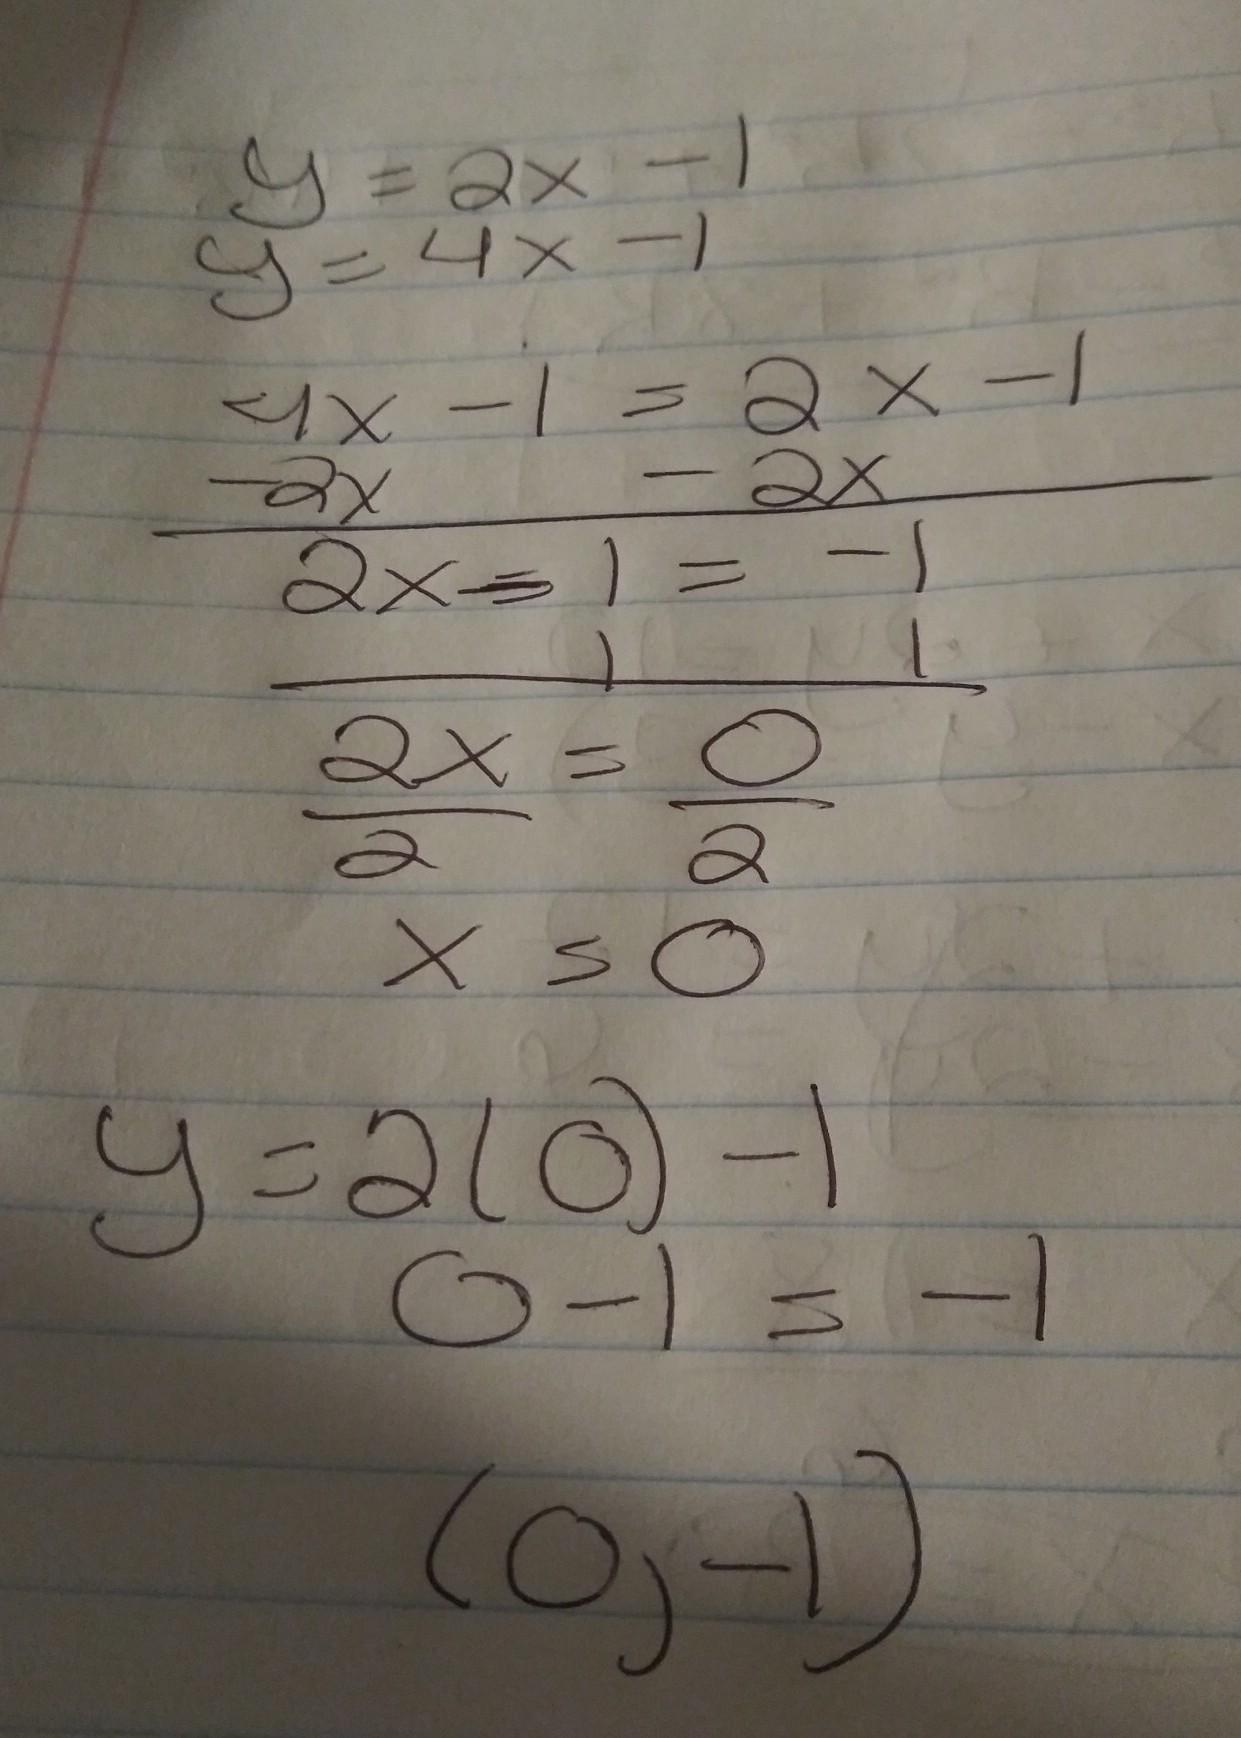 y = 2x - 1
y = 4x - 1
4x - 1 = 2x - 1
-2x - 2x
2x - 1 = -1
1 1
2x = 0
2 2
x = 0
y = 2(0) - 1
0 - 1 = -1
(0, -1)